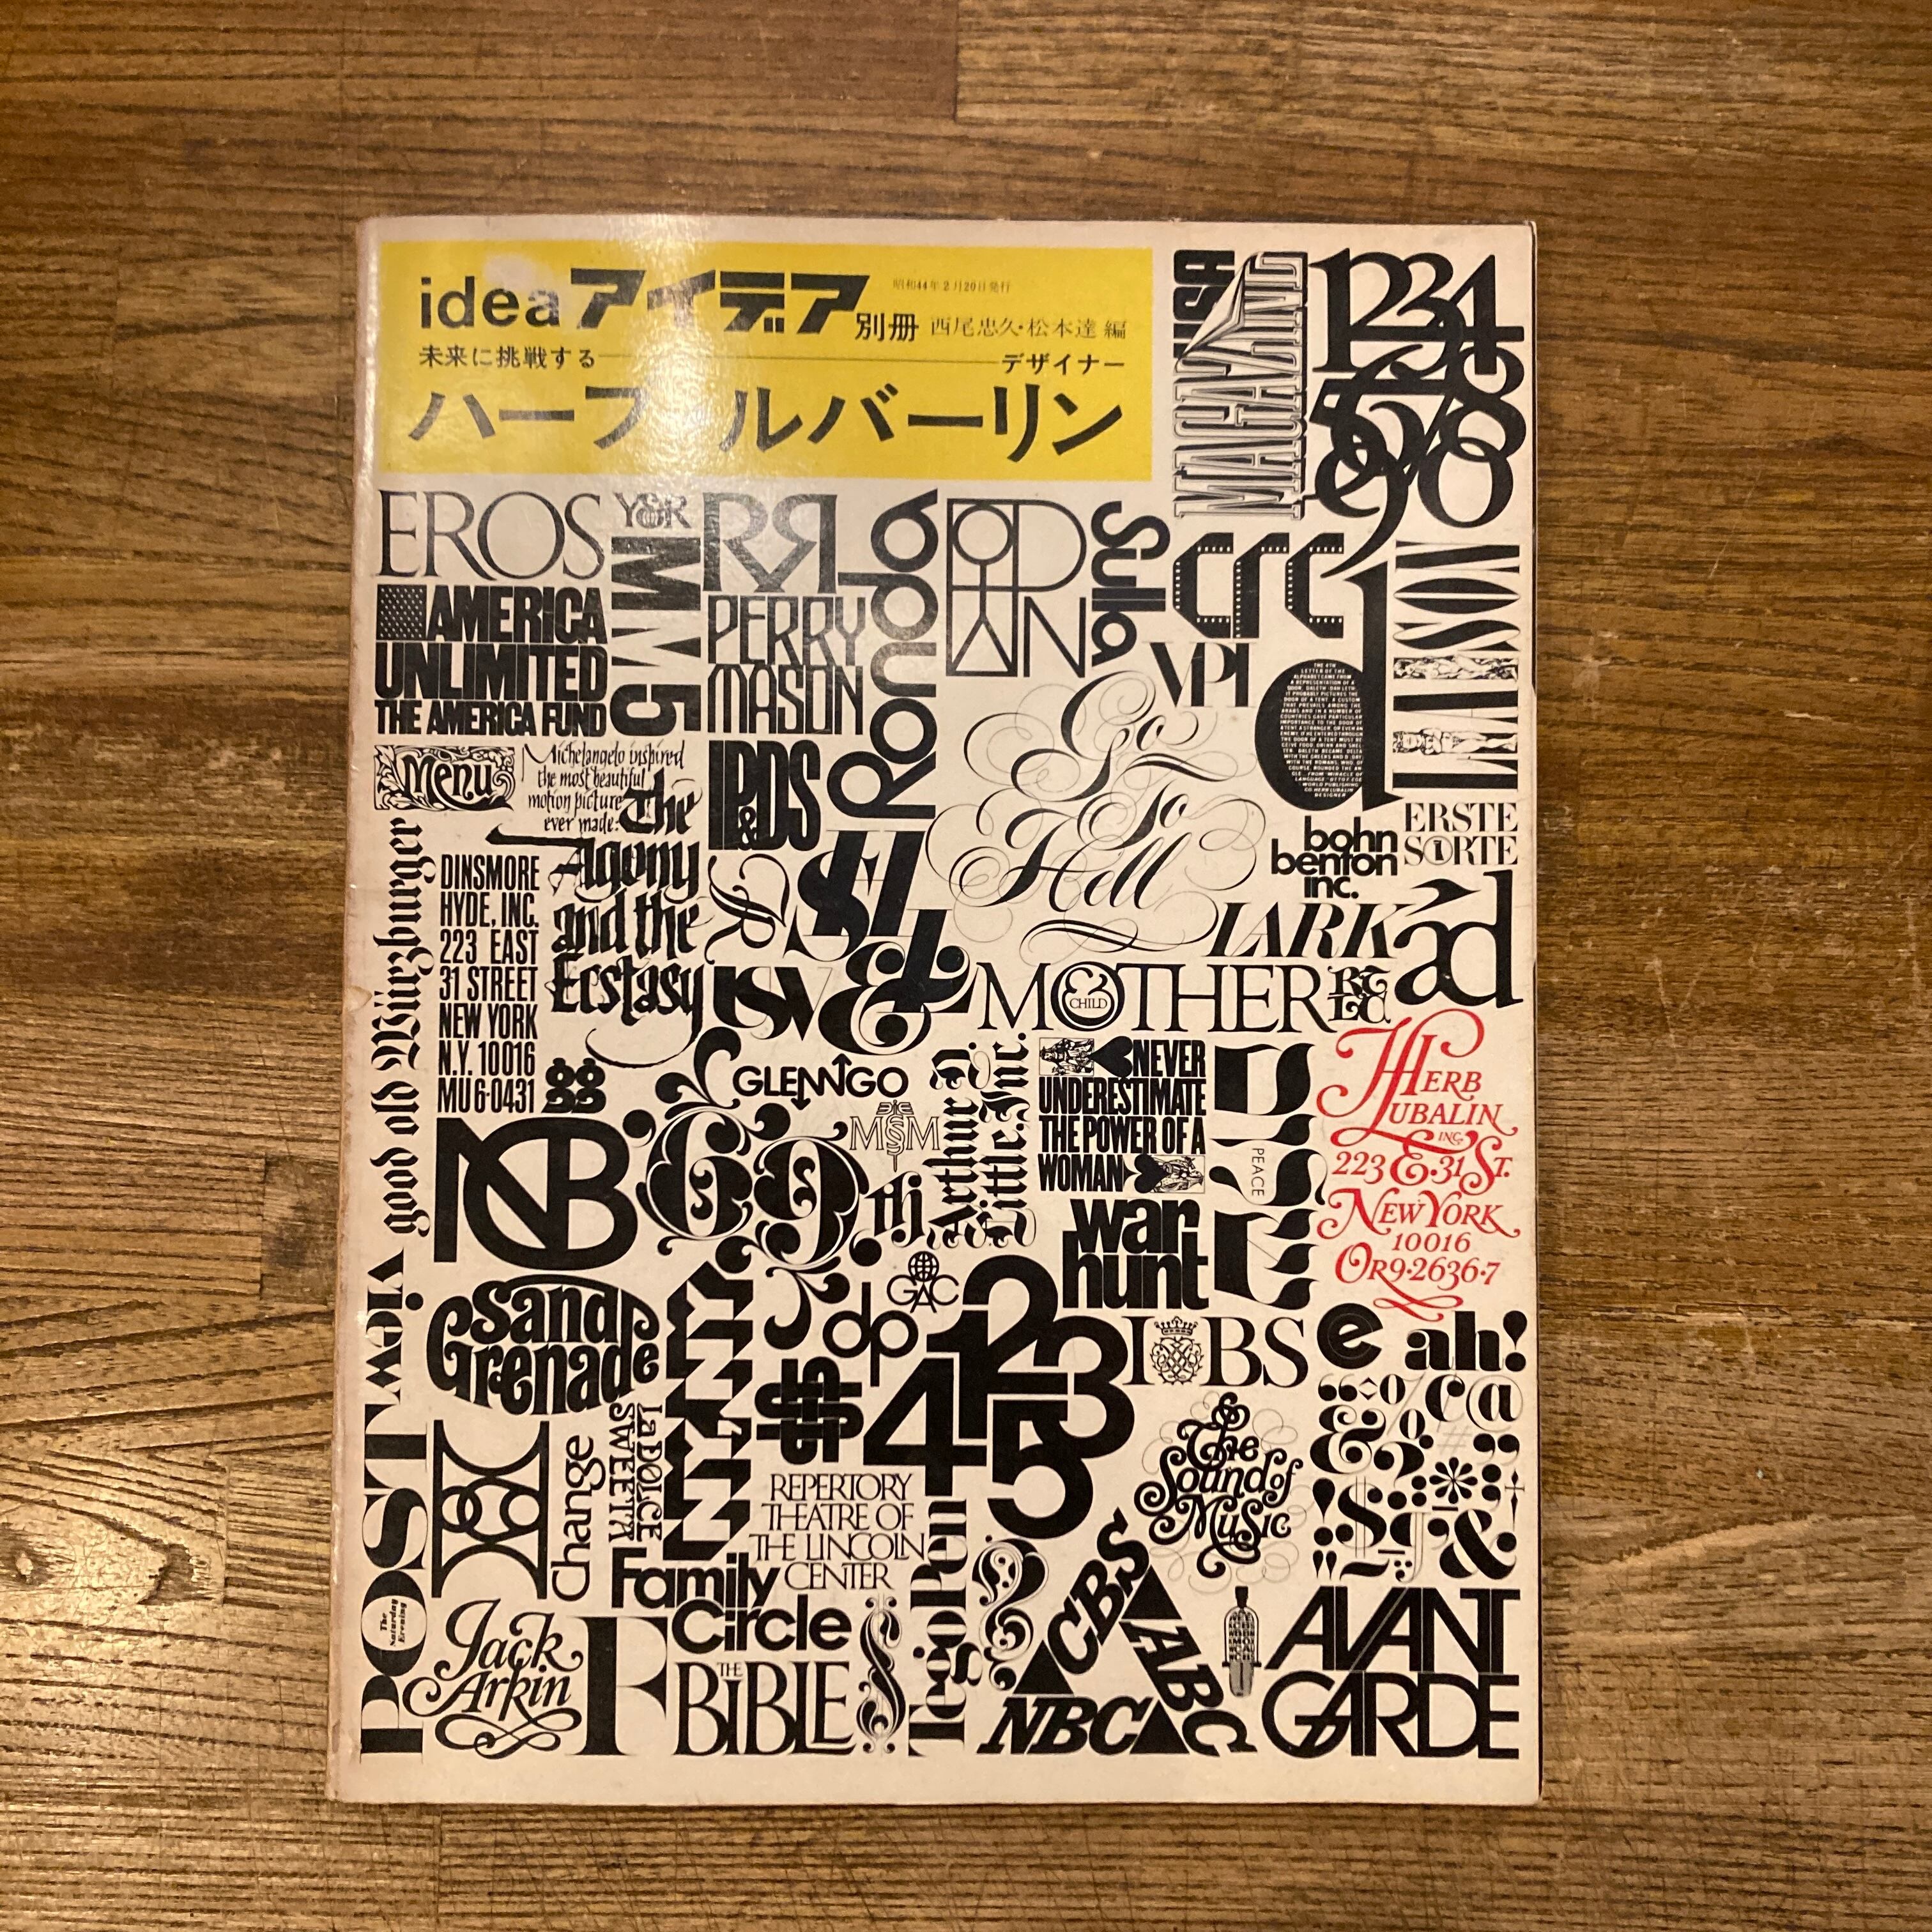 idea アイデア
昭和44年2月20日発行
別冊 西尾忠久・松本達 編
未来に挑戦する
デザイナー
ハーブ ルバーリン
USA
MAGAZINE
1234
567890
EROS
Y&R
RR
Ronda
Sulla
AMERICA
UNLIMITED
THE AMERICA FUND
MM5
PERRY
MASON
VPI
d
Menu
Michelangelo inspired
the most beautiful
motion picture
ever made:
The
Agony
and the
Ecstasy
IP&DS
Go
To
Hell
bohn
benton
inc.
ERSTE
SORTE
LARK
ad
good old Würzburger
DINSMORE
HYDE, INC.
223 EAST
31 STREET
NEW YORK
N.Y. 10016
MU 6-0431
gg
gg
MOTHER
& CHILD
GLENNGO
MSM
Arthur D.
Little.Inc.
NEVER
UNDERESTIMATE
THE POWER OF A
WOMAN
PEACE
HERB
LUBALIN
INC.
223 E.31 ST.
NEW YORK
10016
OR9·2636·7
69
war
hunt
view
sand
Grenade
GAC
dp
12345
BS
e
ah!
POST
The
Saturday
Evening
Change
la DOLCE
REPERTORY
THEATRE OF
THE LINCOLN
CENTER
The
Sound of
Music
Family
Circle
TegoPen
CBS
ABC
NBC
Jack
Arkin
F
THE
BIBLE
AVANT
GARDE